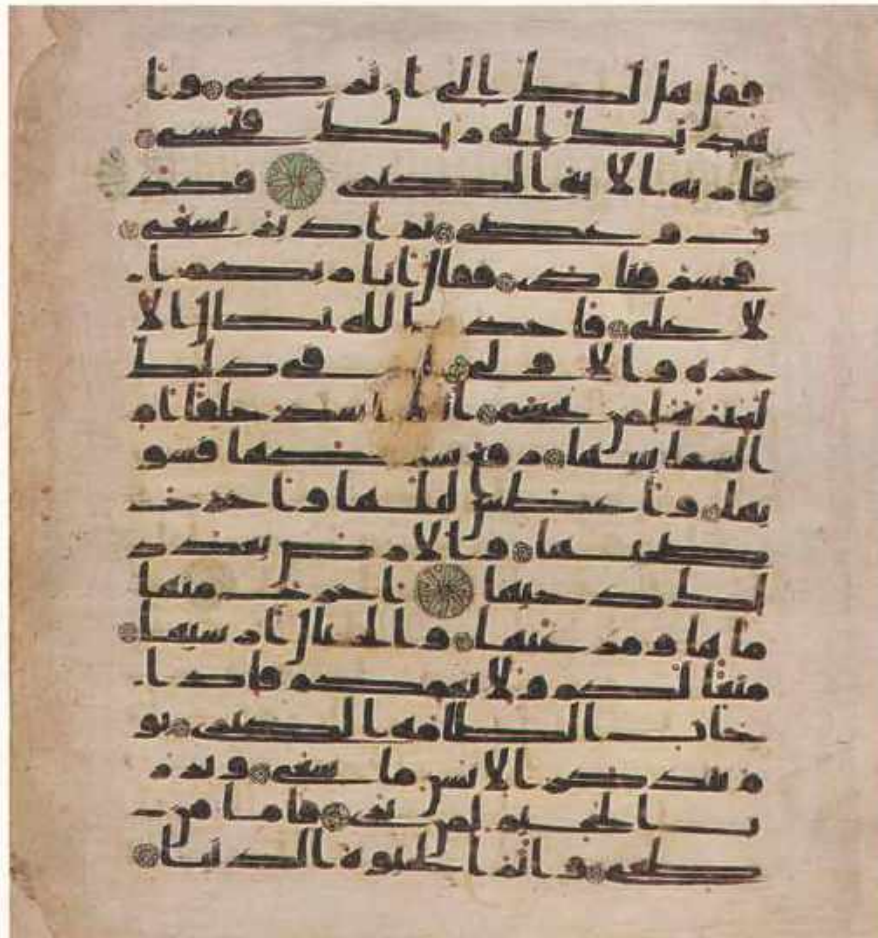 فقل هل لك الى ان تزكى وا
هديك الى ربك فتخشى
فاريه الاية الكبرى فكذ
ب وعصى ثم ادبر يسعى
فحشر فنادى فقال انا ربكم ا
لاعلى فاخذه الله نكال الا
خرة والاولى ان في ذلك
لعبرة لمن يخشى اانتم اشد خلقا ام
السما بنيها رفع سمكها فسو
يها واغطش ليلها واخرج
ضحيها والارض بعد ذ
لك دحيها اخرج منها
ماها ومرعيها والجبال ارسيها
متعا لكم ولانعمكم فاذا
جات الطامة الكبرى يو
م يتذكر الانسن ما سعى وبرز
ت الجحيم لمن يرى فاما من
طغى واثر الحيوة الدنيا